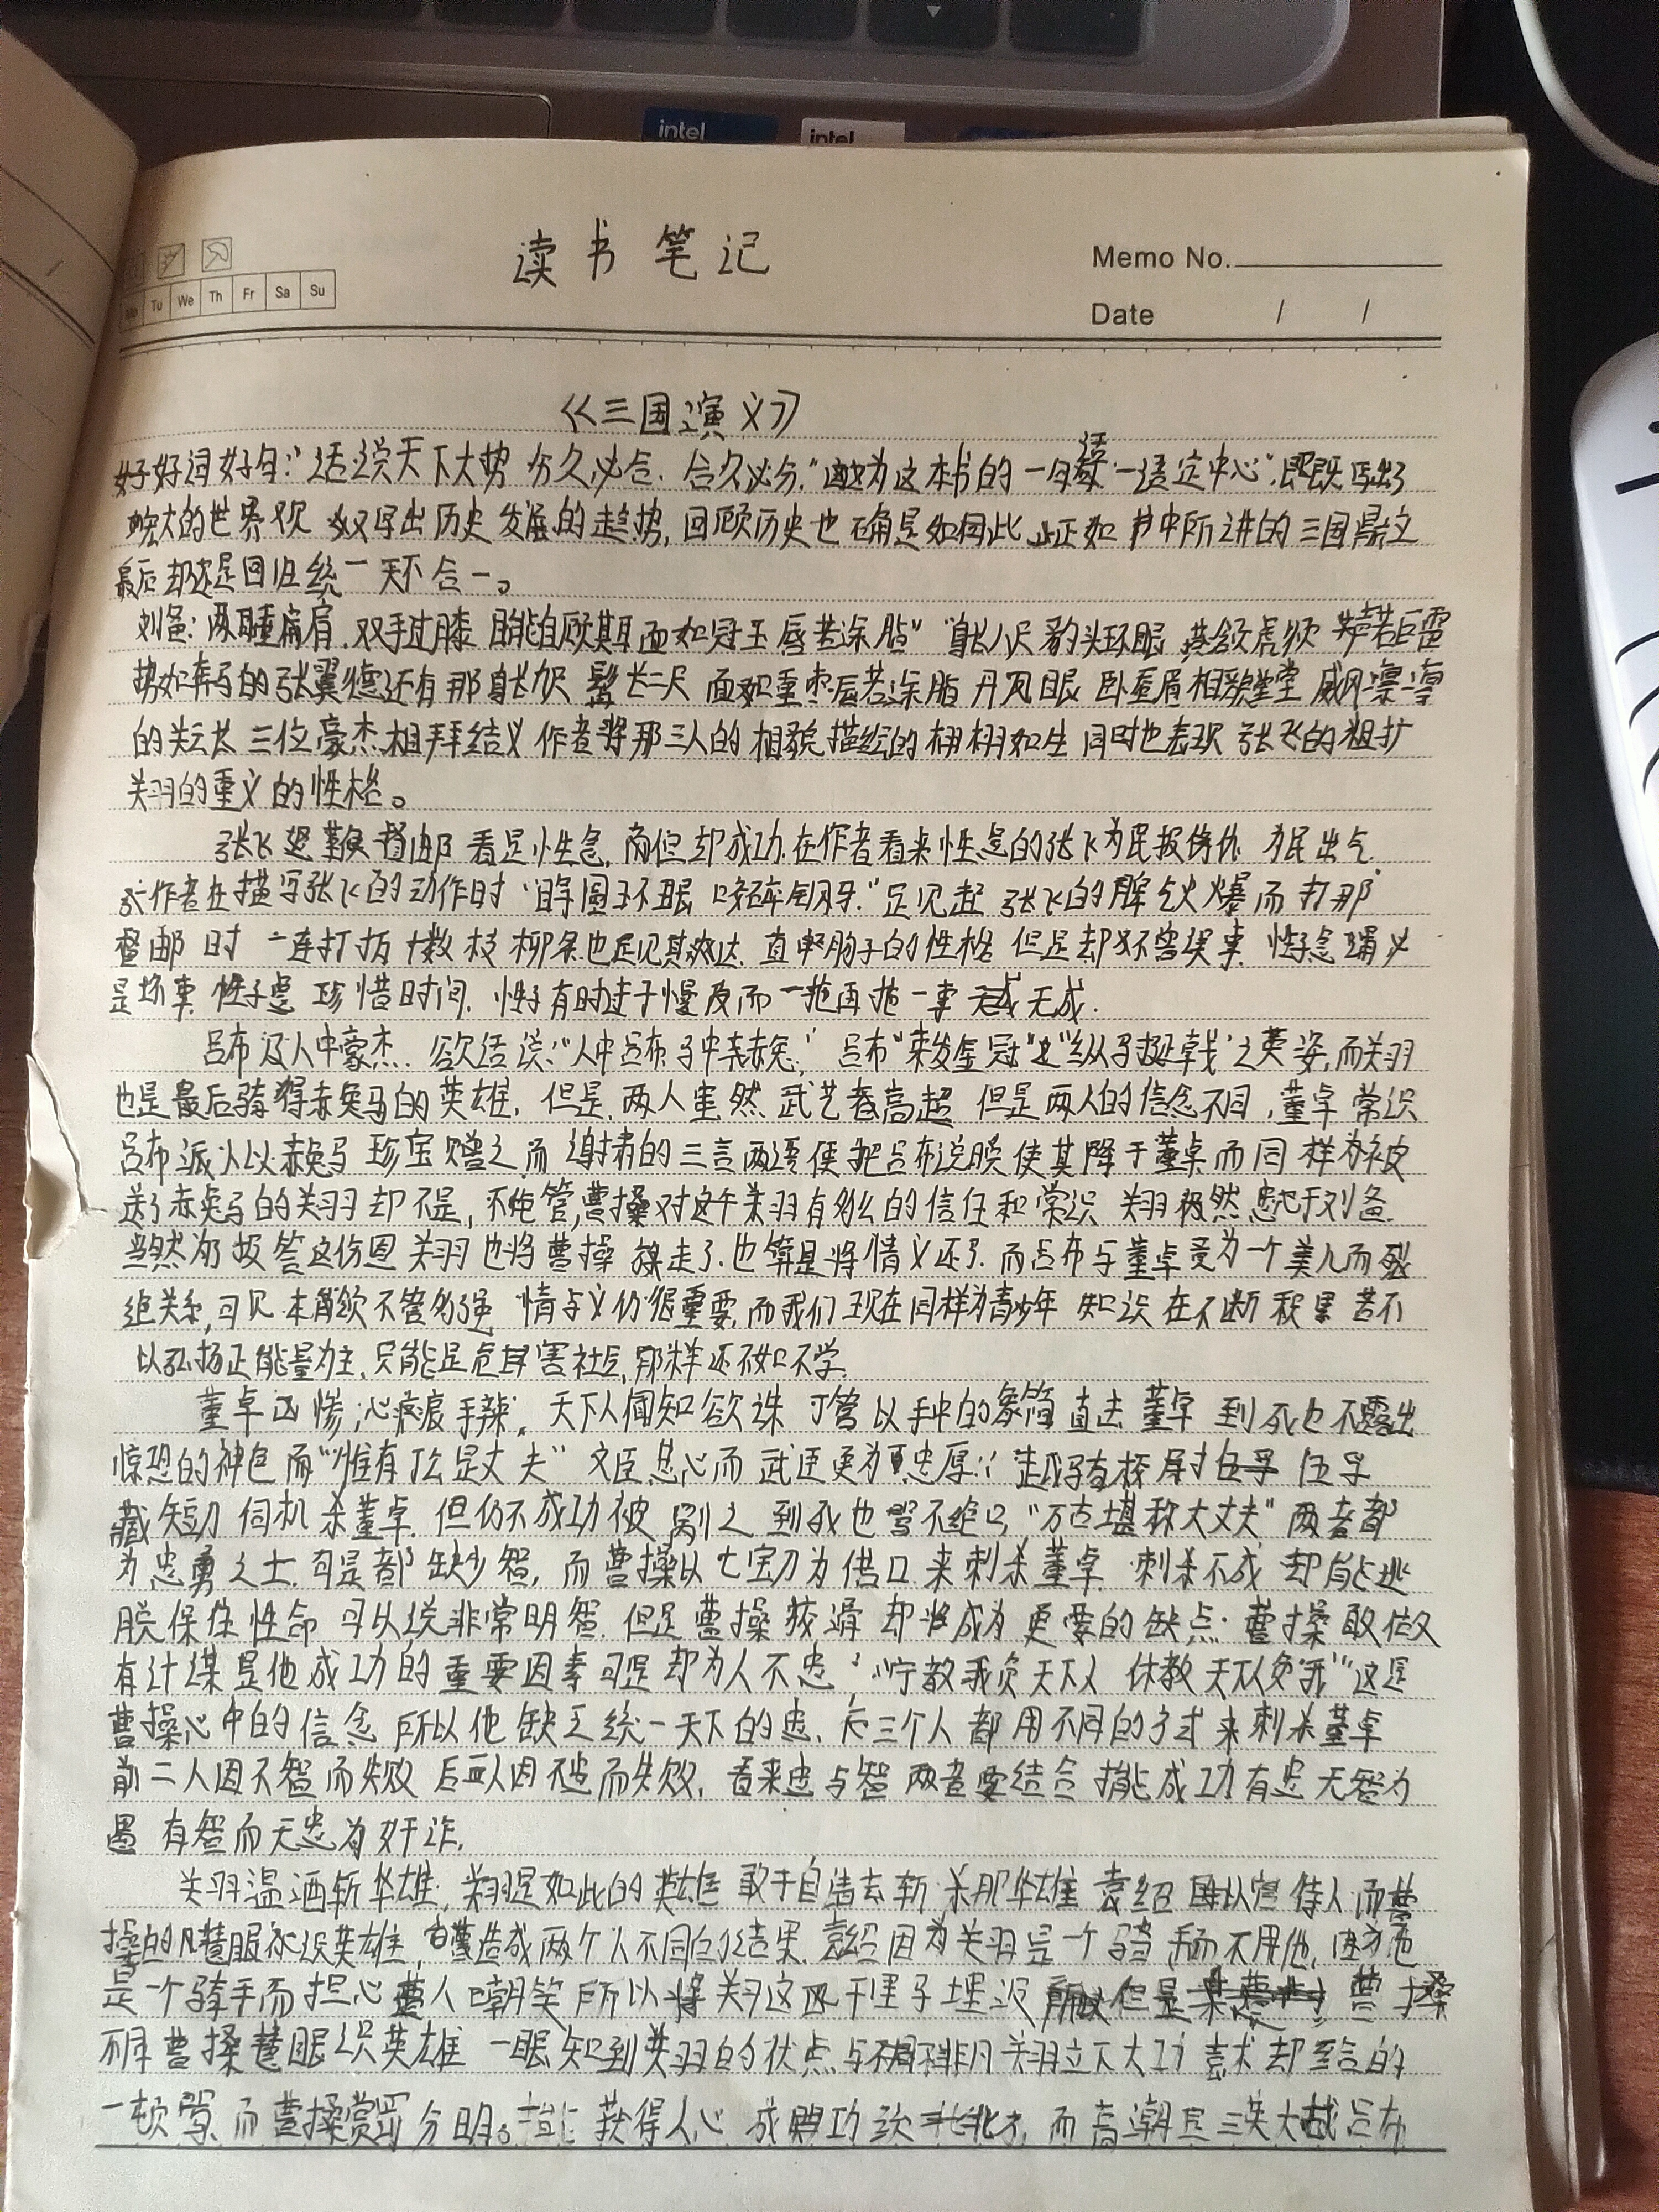 intel
intel
读书笔记
Memo No.
Date / /
Tu We Th Fr Sa Su
《三国演义》
好词好句:"话说天下大势 分久必合. 合久必分."这本书的一句话 一语定中心" 既写出了
的世界观 又写出历史发展的趋势, 回顾历史也确是如此 正如书中所讲的三国鼎立
最后却还是回归统一 天下合一。
刘备: 两耳垂肩. 双手过膝 目能自顾其耳 面如冠玉 唇若涂脂" "身长八尺 豹头环眼 燕颔虎须 声若巨雷
势如奔马的张翼德还有那身长九尺 髯长二尺 面如重枣 唇若涂脂 丹凤眼 卧蚕眉 相貌堂堂 威风凛凛
的关云长 三位豪杰 相拜结义 作者将那三人的相貌描绘的栩栩如生 同时也表现张飞的粗扩
关羽的重义的性格。
张飞怒鞭督邮 看是性急. 但却成功. 在作者看来性急的张飞为民报仇 为民出气.
作者在描写张飞的动作时"睁圆环眼 咬碎钢牙."足见 张飞的脾气火爆而打那
督邮时 一连打折十数枝柳条也足见其 直 的性格 但是却不曾误事. 性子急
是坏事. 性子急 珍惜时间. 性子有时过于慢反而一拖再拖 一事无成.
吕布 人中豪杰. 俗话说:"人中吕布 马中赤兔," 吕布"束发金冠" "纵马挺戟"之英姿, 而关羽
也是最后骑得赤兔马的英雄, 但是, 两人虽然 武艺都高超 但是两人的信念不同, 董卓 常识
吕布 派人以赤兔马 珍宝 赠之 而 李肃的三言两语便把吕布说服 使其降于董卓 而同样为被
送了赤兔马的关羽却不是, 不管, 曹操对这个关羽有多么的信任和常识 关羽 然忠心于刘备.
当然为了报答这份恩 关羽也将曹操放走了. 也算是将情义还了. 而吕布与董卓 为一个美人而
绝关系, 可见 本领 不管多强 情与义仍很重要, 而我们现在同样为青少年 知识在不断积累 若不
以弘扬正能量为主, 只能是危害社会, 那样还不如不学.
董卓凶惨, 心狠手辣, 天下人闻知欲诛 丁管以手中的象简直击董卓 到死也不露出
惊恐的神色 而"惟有丁公是丈夫" 文臣忠心而武 更为忠厚: 越骑校尉 伍孚
藏短刀 伺机杀董卓. 但仍不成功被剐之 到死也骂不绝口 "万古堪称大丈夫" 两者都
为忠勇之士. 可是都缺少智, 而曹操以七宝刀为借口来刺杀董卓 刺杀不成 却能逃
脱保住性命 可以说非常明智. 但是曹操狡猾 却将成为更要的缺点. 曹操敢做又
有计谋是他成功的重要因素 可是却为人不忠,"宁教我负天下人 休教天下人负我"这是
曹操心中的信念 所以他缺乏统一天下的忠. 三个人都用不同的方式来刺杀董卓
前二人因不智而失败 后一人因不忠而失败, 看来忠与智 两者要结合 才能成功 有忠无智为
愚 有智而无忠为奸诈.
关羽温酒斩华雄, 关羽是如此的英雄 敢于自请去斩杀那华雄 袁绍 以官待人 而曹
操的慧眼 识英雄, 造成两个人不同的结果. 袁绍因为关羽是一个马弓手而不用他,
是一个骑手而担心 人嘲笑 所以将关羽这匹千里马埋没 但是 曹操
不同 曹操慧眼识英雄 一眼知到关羽的优点与不同非凡 关羽立下大功 袁术却给的
一顿骂. 而曹操赏罚分明。 获得人心 成 而高潮是三英大战吕布